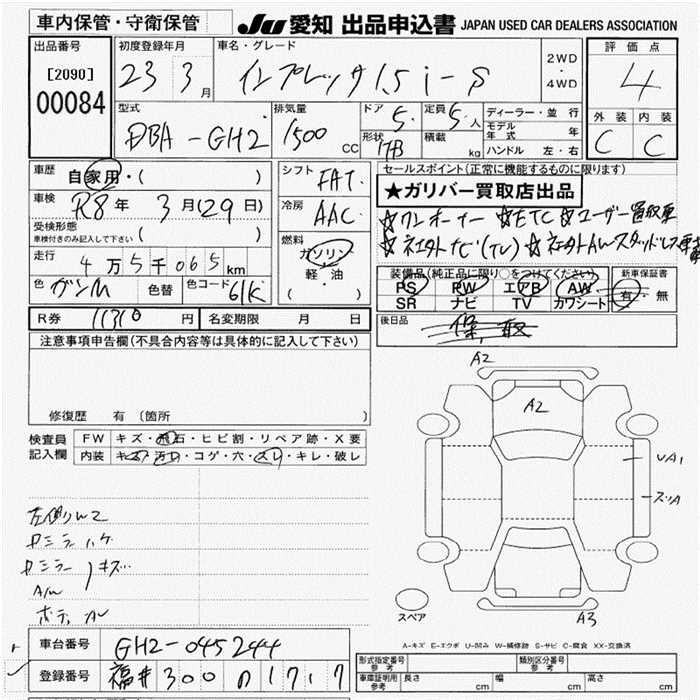 車内保管・守衛保管
JU 愛知 出品申込書 JAPAN USED CAR DEALERS ASSOCIATION
出品番号
[2090]
00084
初度登録年月
23 3月
車名・グレード
インプレッサ1.5 i-S
2WD
・
4WD
評価点
4
外装 内装
C C
型式
DBA-GH2
排気量
1500 CC
ドア 5
定員 5人
形状 5HB
積載 kg
ディーラー・並行
モデル年式 年
ハンドル 左・右
車歴 自家用・( )
車検 R8年 3月(29日)
受検形態
車検付きのみ記入して下さい ( )
走行 4万5千065km
色 ガンM 色替 色コード 61K
シフト FAT
冷房 AAC
燃料
ガソリン
軽・油
( ・ )
セールスポイント(正常に機能するものに限ります)
★ガリバー買取店出品
☆ワンオーナー ☆ETC ☆ユーザー買取車
☆社外ナビ(TV) ☆社外AWスタッドレス
装備品(純正品に限り○をつけてください)
PS PW エアB AW
SR ナビ TV カワシート
新車保証書
有・無
R券 11310円 名変期限 月 日
後日品 保、取
注意事項申告欄(不具合内容等は具体的に記入して下さい)
修復歴 有(箇所 )
検査員記入欄
FW キズ・飛石・ヒビ割・リペア跡・X要
内装 キズ・汚れ・コゲ・穴・スレ・キレ・破レ
A2
A2
UA1
A3
スペア
A-キズ E-エクボ U-凹み W-補修跡 S-サビ C-腐食 XX-交換済
車台番号 GH2-045244
登録番号 福井 300 の 1717
形式指定番号 参考
類別区分番号 参考
車庫証明用 参考 長さ cm 幅 cm 高さ cm